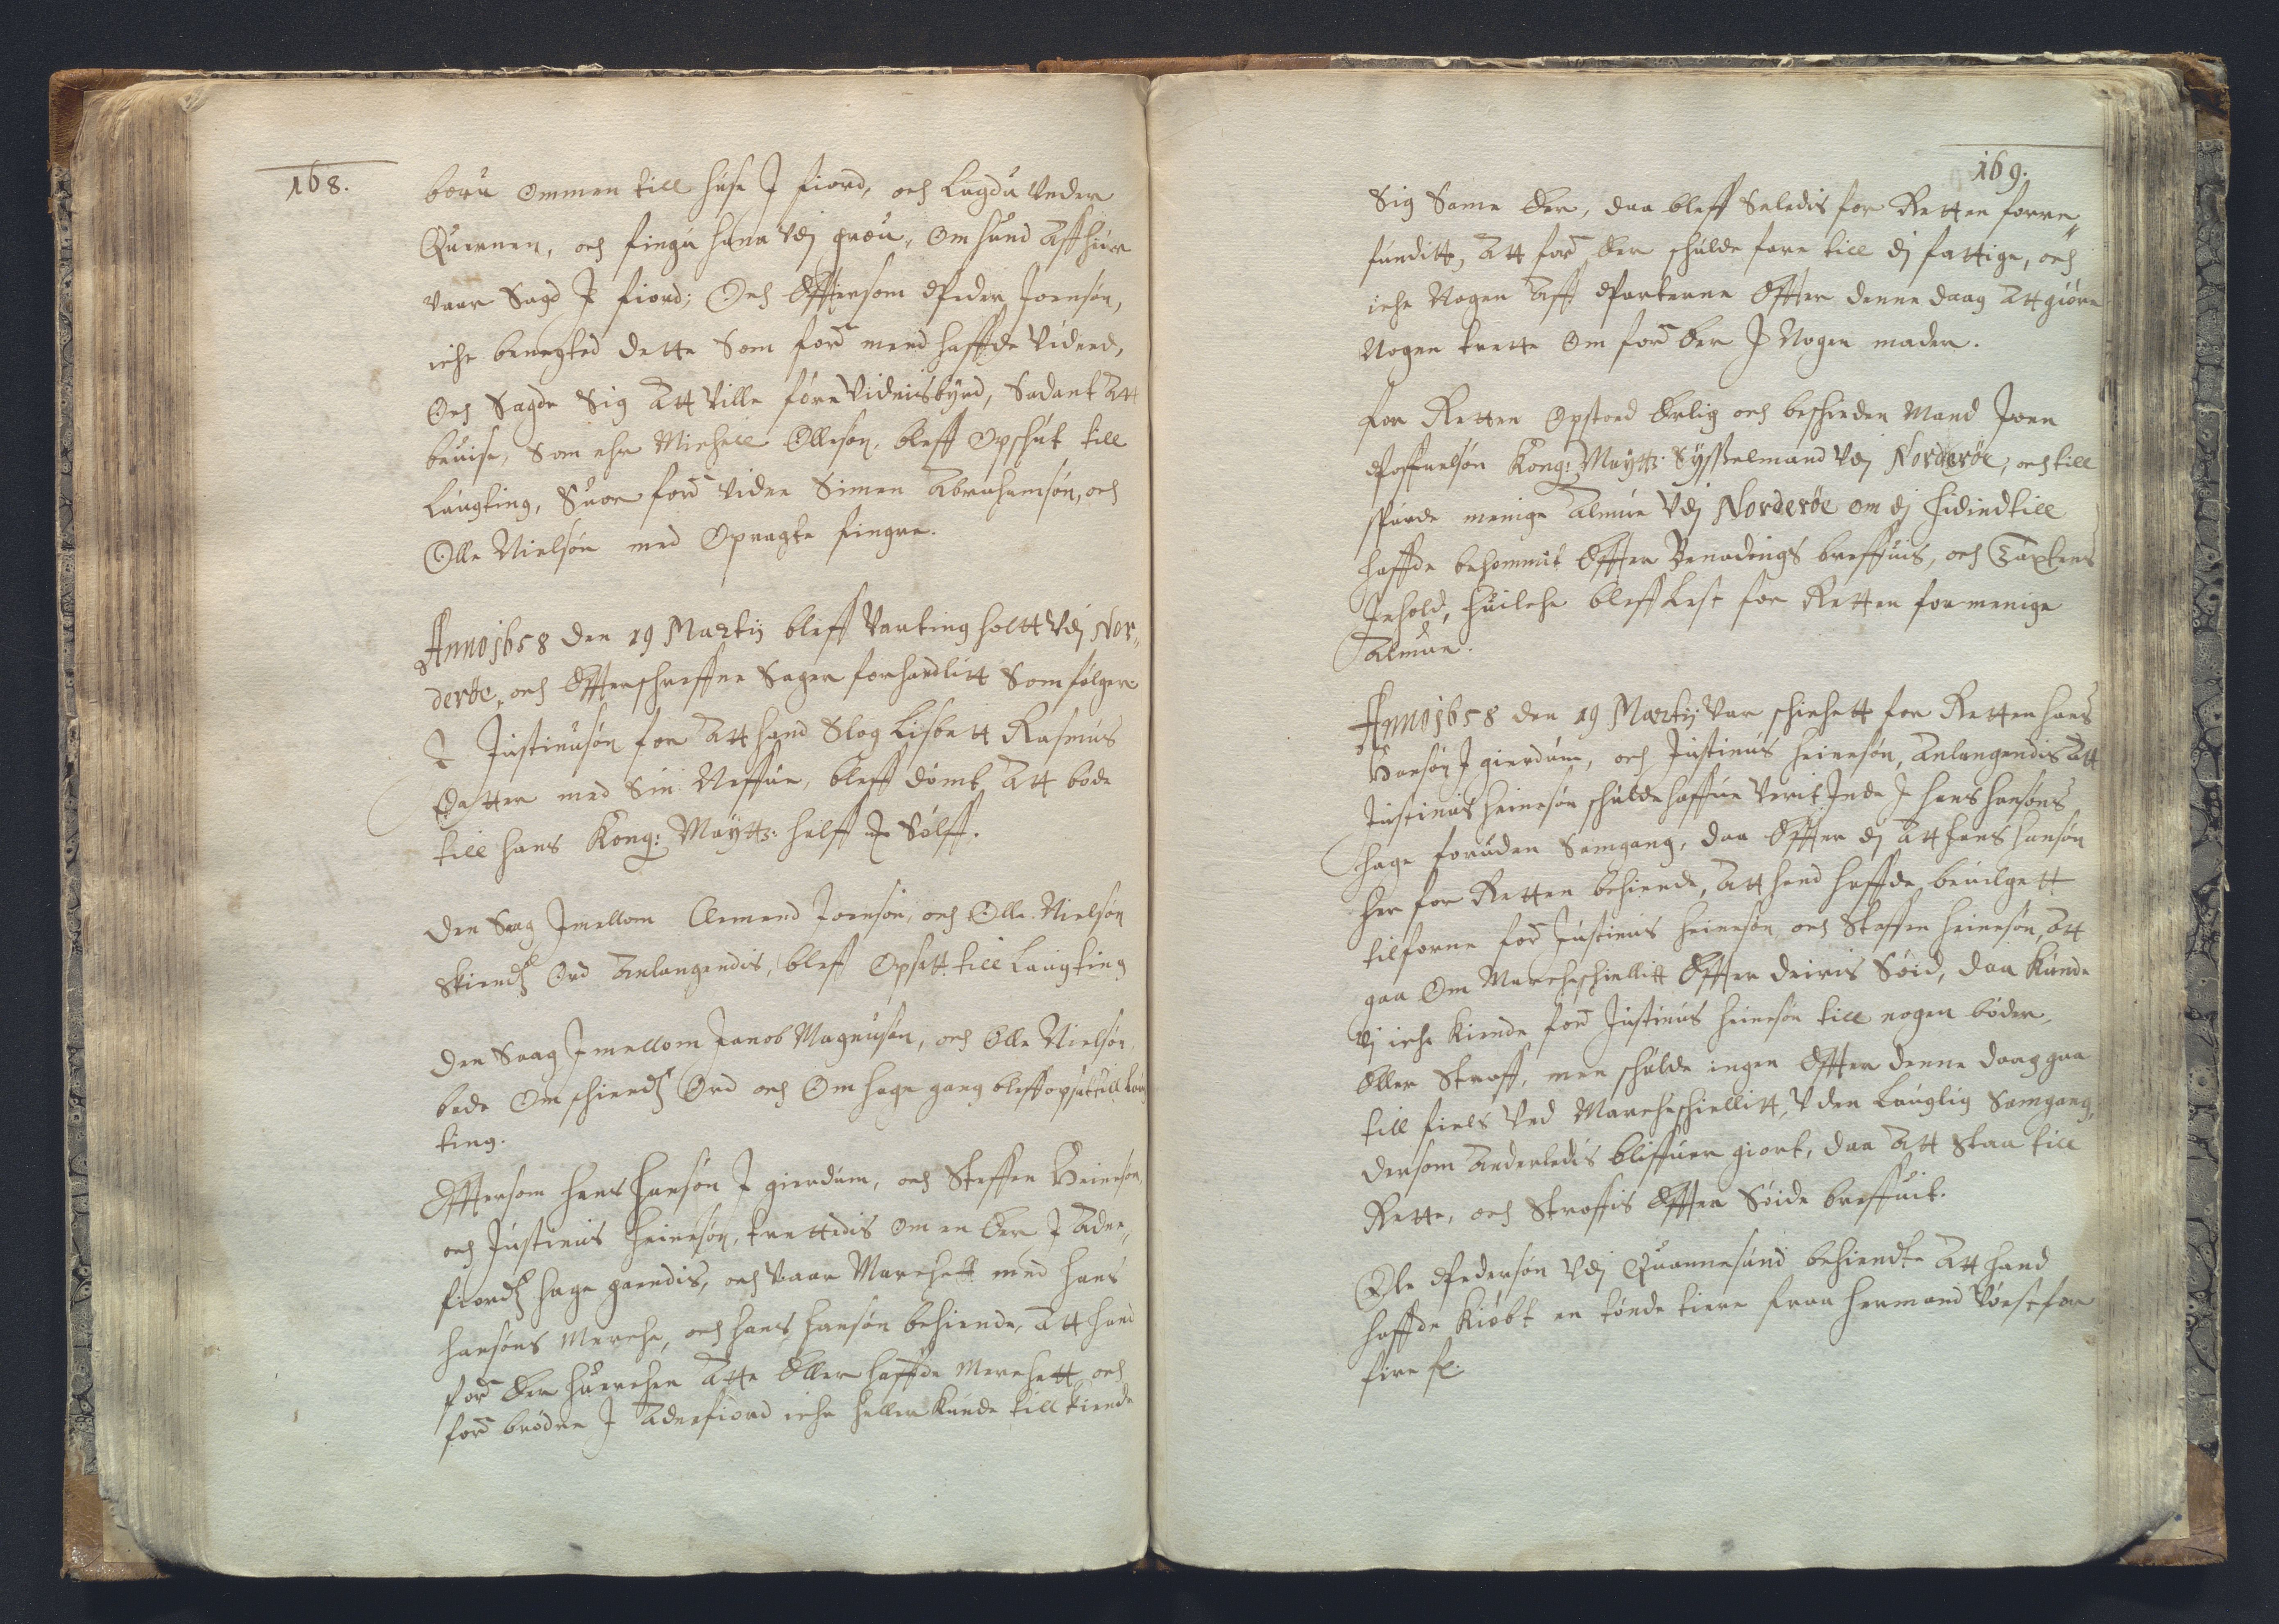 168.
boru Ommen till huse I fiord, och Lagda Under
Quernen, och finga hana Udj graa, Om hund Aff hiur
vaar Sagd I fiord; Och Effttersom Peder Joensøn,
iche benegted dette Som ford mend haffde Vidned,
Och Sagde Sig Att Ville føre Vidnisbyrd, Sadant Att
beuise, Som ehr Michell Ollesøn, bleff Opschut till
Laugting, Suor ford Vidne Simen Abrahamsøn, och
Olle Nielsøn med Opragte fingre.
Anno 1658 den 19 Martij bleff Varting holtt Udj Nor„
derøe, och Effterschreffne Sager forhandlitt Som følger
J Justinusøn for Att hand Slog Lisbett Rasmus
Datter med Sin Neffue, bleff dømt Att bøde
till hans Kong: Maytts: halff # Sølff.
Den Saag Imellom Clemend Joensøn, och Olle Nielsøn
Skiendtz Ord Anlangendis, bleff Opsatt till Laugting
Den Saag Imellom Jacob Magnusøn, och Olle Nielsøn
bode Om schiendtz Ord och Om hage gang bleff opsatt till Lau
ting.
Effttersom Hans Hansøn I gierdum, och Steffen Heinesøn,
och Justinus Heinesøn, trettedis Om en Oer I Adne„
fiordtz hage gaendis, och Vaar Marchett med Hans
Hansøns Merche, och Hans Hansøn bekiende, Att hand
ford Oer huerchen Atte Eller haffde Merchett, och
ford brødre I Adnefiord iche heller kunde till kiende
169.
Sig Same Oer, daa bleff Saledis for Retten forre„
funditt, Att ford Oer schulde fare till dj fattige, och
iche Nogen Aff Parterne Effter denne daag Att giøre
Nogen trette Om ford Oer I Nogen mader.
For Retten Opstoed Erlig och beschieden Mand Joen
Poffuelsøn Kong: Maytts: Sysselmand Udj Norderøe, och till
spurde menige Almue Udj Norderøe om dj hidindtill
haffde bekommit Effter Benadings breffuis, och Taxtens
Inhold, huilche bleff Lest for Retten for menige
Almue.
Anno 1658 den 19 Martij Var schichett for Retten Hans
Hansøn I gierdum, och Justinus Heinesøn, Anlangendis Att
Justinus Heinesøn schulde haffue Verit Inde I Hans Hansøns
Hage foruden Samgang, daa Effter dj Att Hans Hansøn
her for Retten bekiende, Att hand haffde beuilgett
tilforne ford Justinus Heinesøn och Steffen Heinesøn, Att
gaa Om Marcheschiellitt Effter deiris Søid, daa kunde
Vj iche kiende ford Justinus Heinesøn till nogen bøder,
Eller Straff, men schulde ingen Effter denne daag gaa
till fiels Ved Marcheschiellitt, Uden Lauglig Samgang,
dersom Anderledis bliffuer giort, daa Att Staa till
Rette, och Straffis Effter Søide breffuit.
Ole Pedersøn Udj Quannesund bekiendte Att hand
haffde Kiøbt en tønde tiere fraa Hermand Vørst for
fire fl.